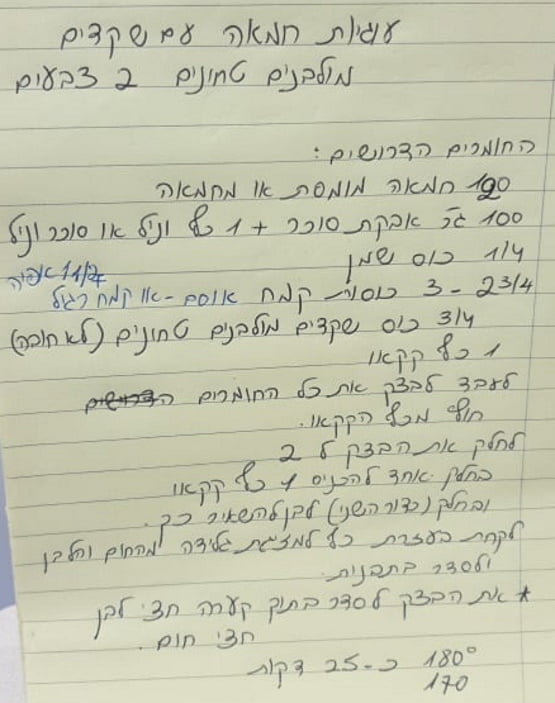 עוגיות חמאה עם שקדים
מולבנים טחונים 2 צבעים
החומרים הדרושים:
190 חמאה מומסת או מחמאה
100 גר' אבקת סוכר + 1 כף וניל או סוכר וניל
1/4 כוס שמן
1 1/2 אפיה
2 3/4 - 3 כוסות קמח אוסם - או קמח רגיל
3/4 כוס שקדים מולבנים טחונים (לא חובה)
1 כף קקאו
לעבד לבצק את כל החומרים הדרושים
חוץ מכף הקקאו.
לחלק את הבצק ל 2
בחלק אחד להכניס 1 כף קקאו
ובחלק (כדור השני) לבן להשאיר כך.
לקחת בעזרת כף למזיגת גלידה מהחום והלבן
ולסדר בתבנית.
* את הבצק לסדר בתוך קערה חצי לבן
חצי חום.
180° כ-25 דקות
170